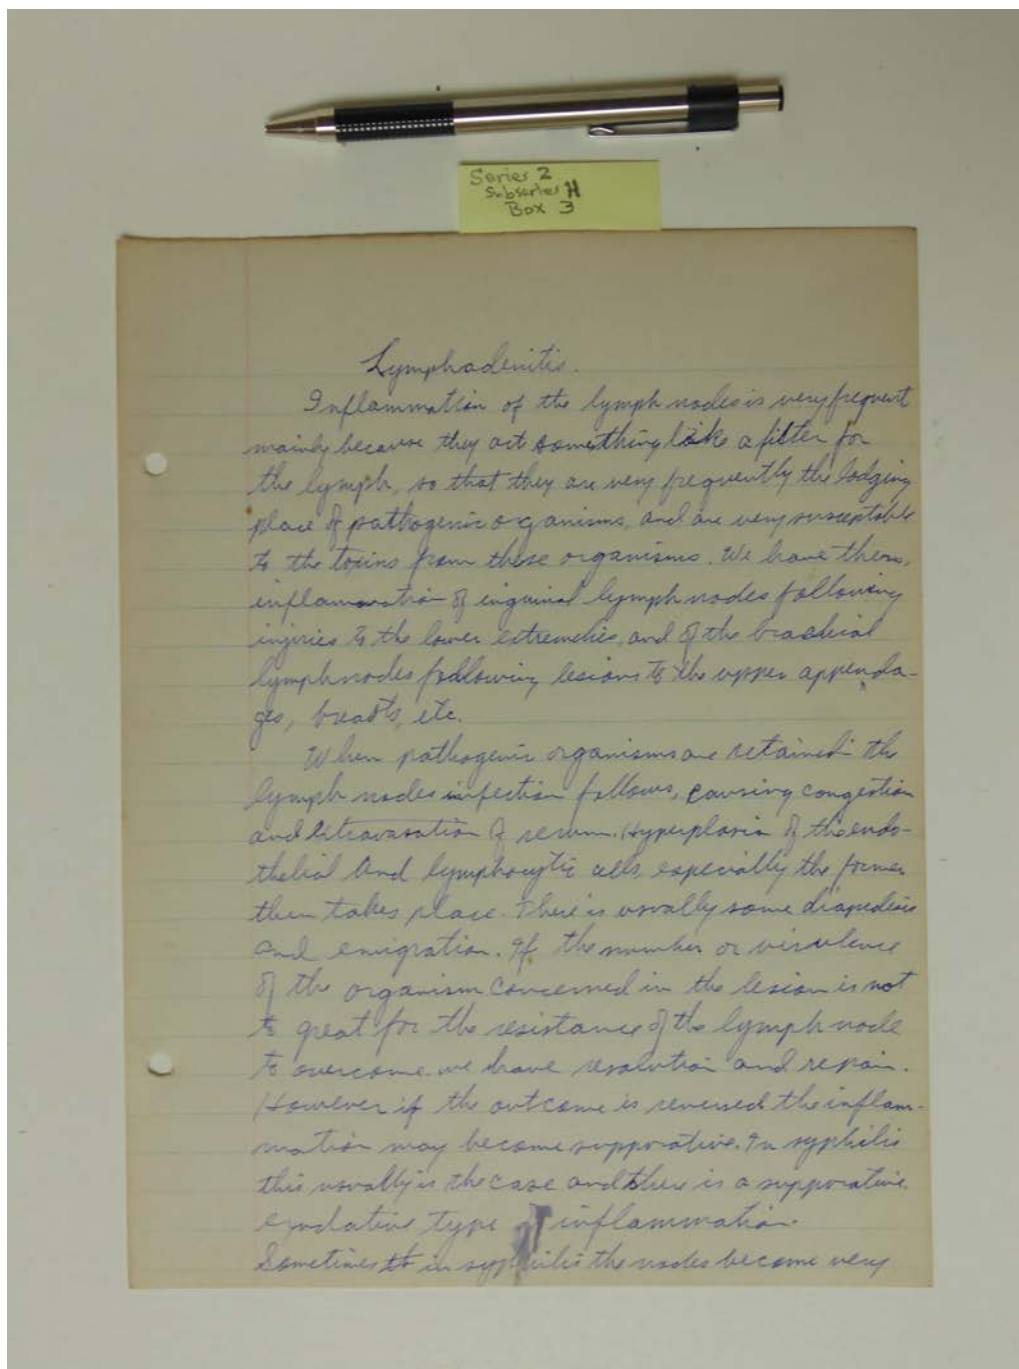 Series 2
Subseries H
Box 3
Lymphadenitis.
Inflammation of the lymph nodes is very frequent
mainly because they act something like a filter for
the lymph, so that they are very frequently the lodging
place of pathogenic organisms, and are very susceptable
to the toxins from these organisms. We have then,
inflammation of inguinal lymph nodes following
injuries to the lower extremeties, and of the brachial
lymph nodes following lesions to the upper appenda-
ges, breasts, etc.
When pathogenic organisms are retained in the
lymph nodes infection follows, causing congestion
and extravasation of serum. Hyperplasia of the endo-
thelial and lymphocytic cells, especially the former
then takes place. There is usually some diapedesis
and emigration. If the number or virulence
of the organism concerned in the lesion is not
to great for the resistance of the lymph node
to overcome we have resolution and repair.
However if the outcome is reversed the inflam-
mation may become supporative. In syphilis
this usually is the case and there is a supporative
exudative type of inflammation.
Sometimes in syphilis the nodes become very